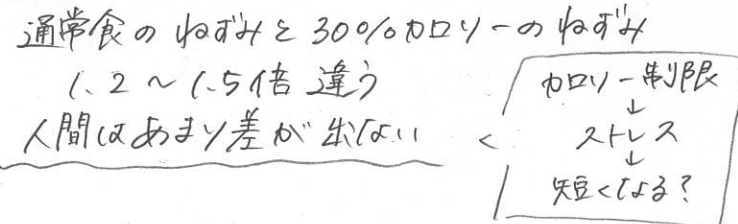 通常食のねずみと30%カロリーのねずみ
1.2～1.5倍違う
人間はあまり差が出ない <
カロリー制限
↓
ストレス
↓
短くなる?